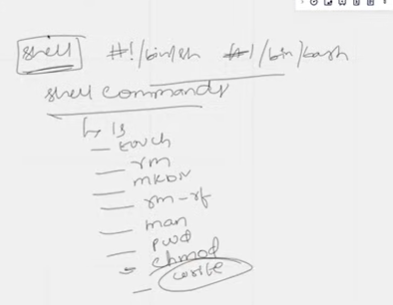 shell #!/bin/sh #!/bin/bash
shell commands
ls
touch
rm
mkdir
rm -rf
man
pwd
chmod
write